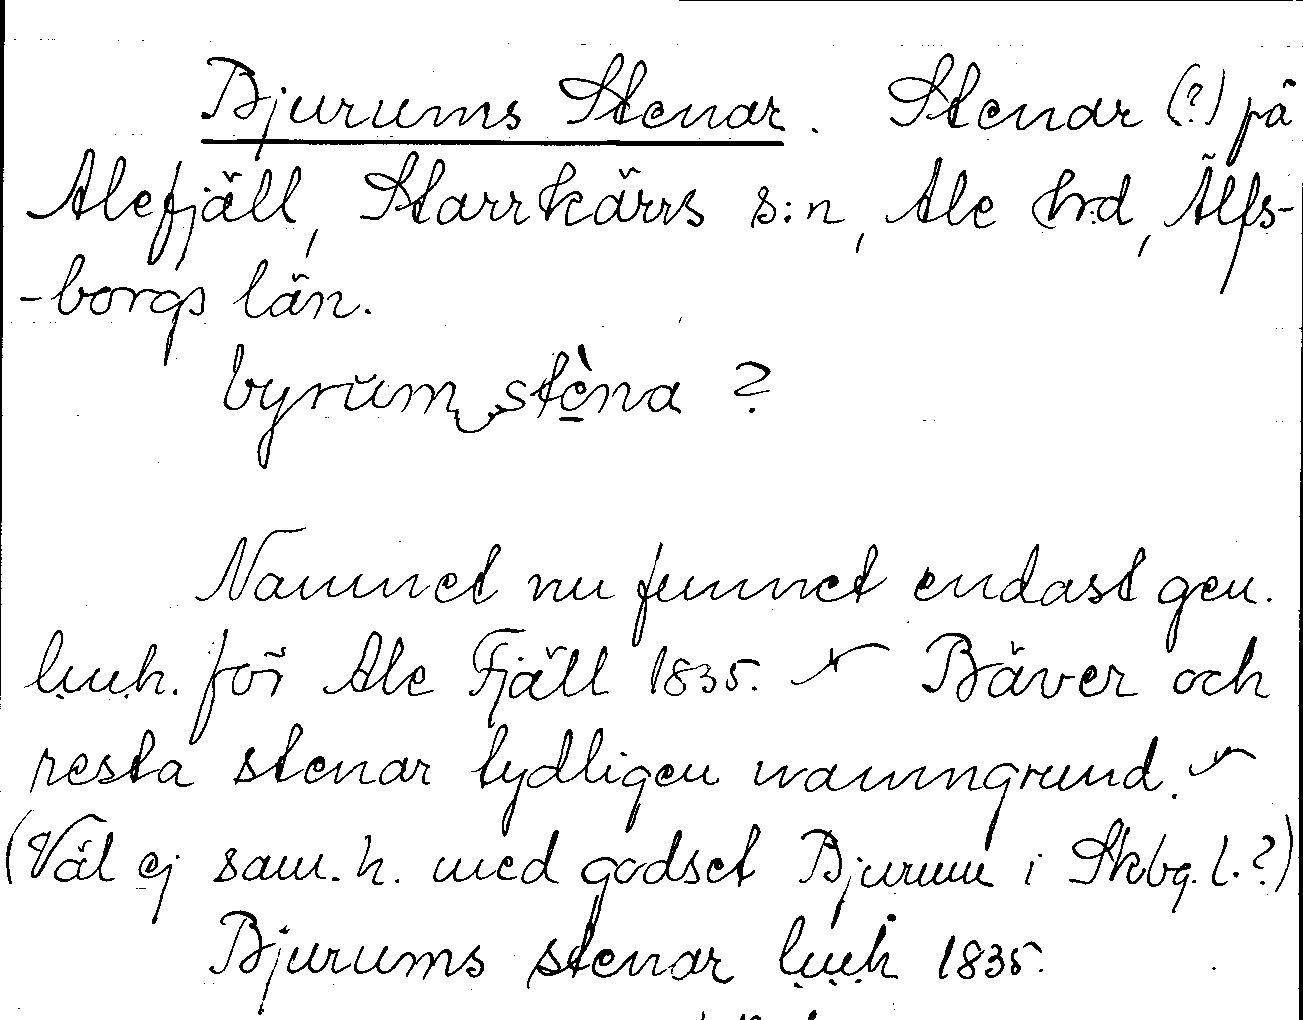 Bjurums Stenar. Stenar (?) på
Alefjäll, Starrkärrs s:n, Ale hrd, Älfs-
-borgs län.
byrŭm stèna ?
Namnet nu funnet endast gen.
lmh. för Ale Fjäll 1835. Bäver och
resta stenar tydligen namngrund.
(Väl ej sam. h. med godset Bjurum i Skbg. l. ?)
Bjurums stenar lmh 1835.